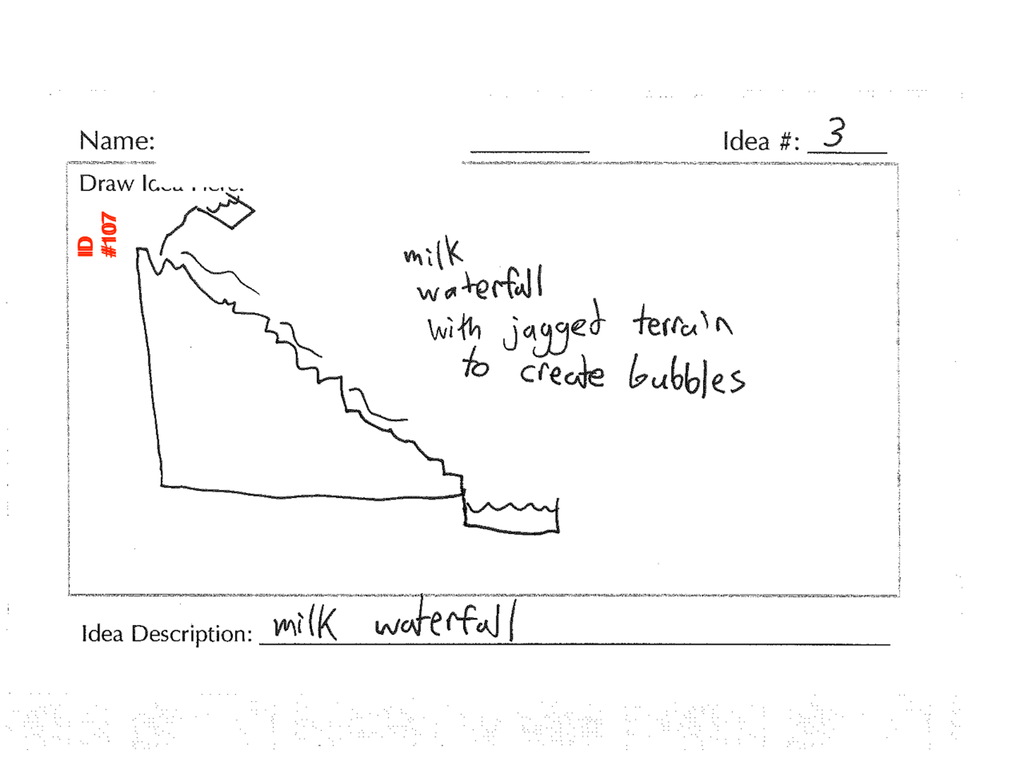 Name: Idea #: 3
Draw Idea Here:
ID
#107
milk
waterfall
with jagged terrain
to create bubbles
Idea Description: milk waterfall